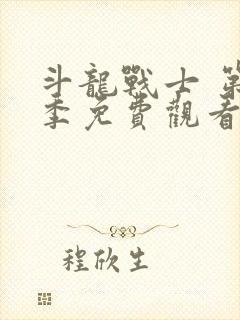 斗龍戰士 第
季免費觀看
程欣生